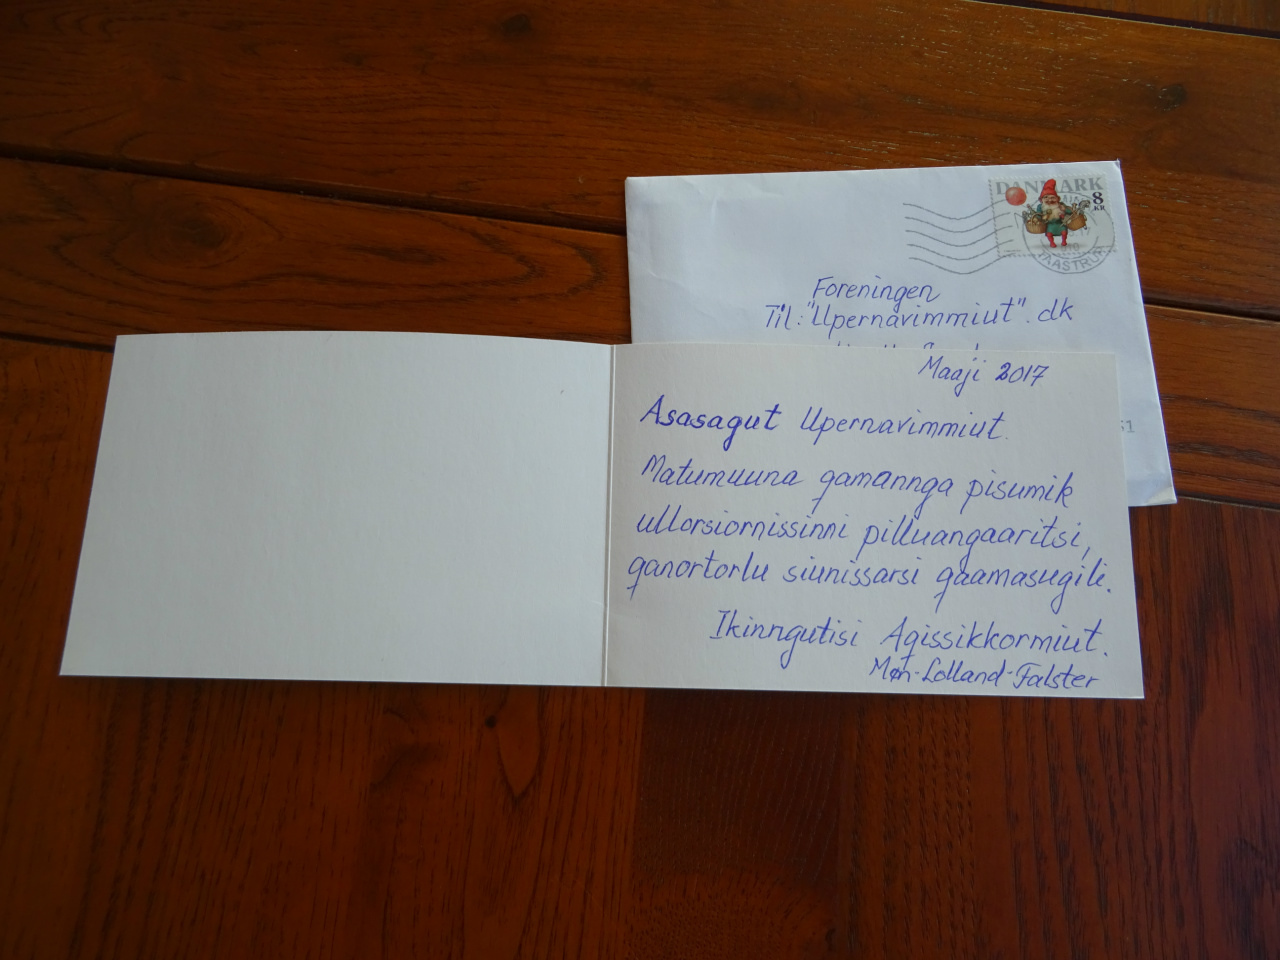 DANMARK
8
KR
TAASTRUP
Foreningen
Til: "Upernavimmiut".dk
Maaji 2017
Asasagut Upernavimmiut.
Matumuuna qamannga pisumik
ullorsiornissinni pilluangaaritsi,
qanortorlu siunissarsi qaamasugile.
Ikinngutisi Aqissikkormiut.
Møn-Lolland-Falster